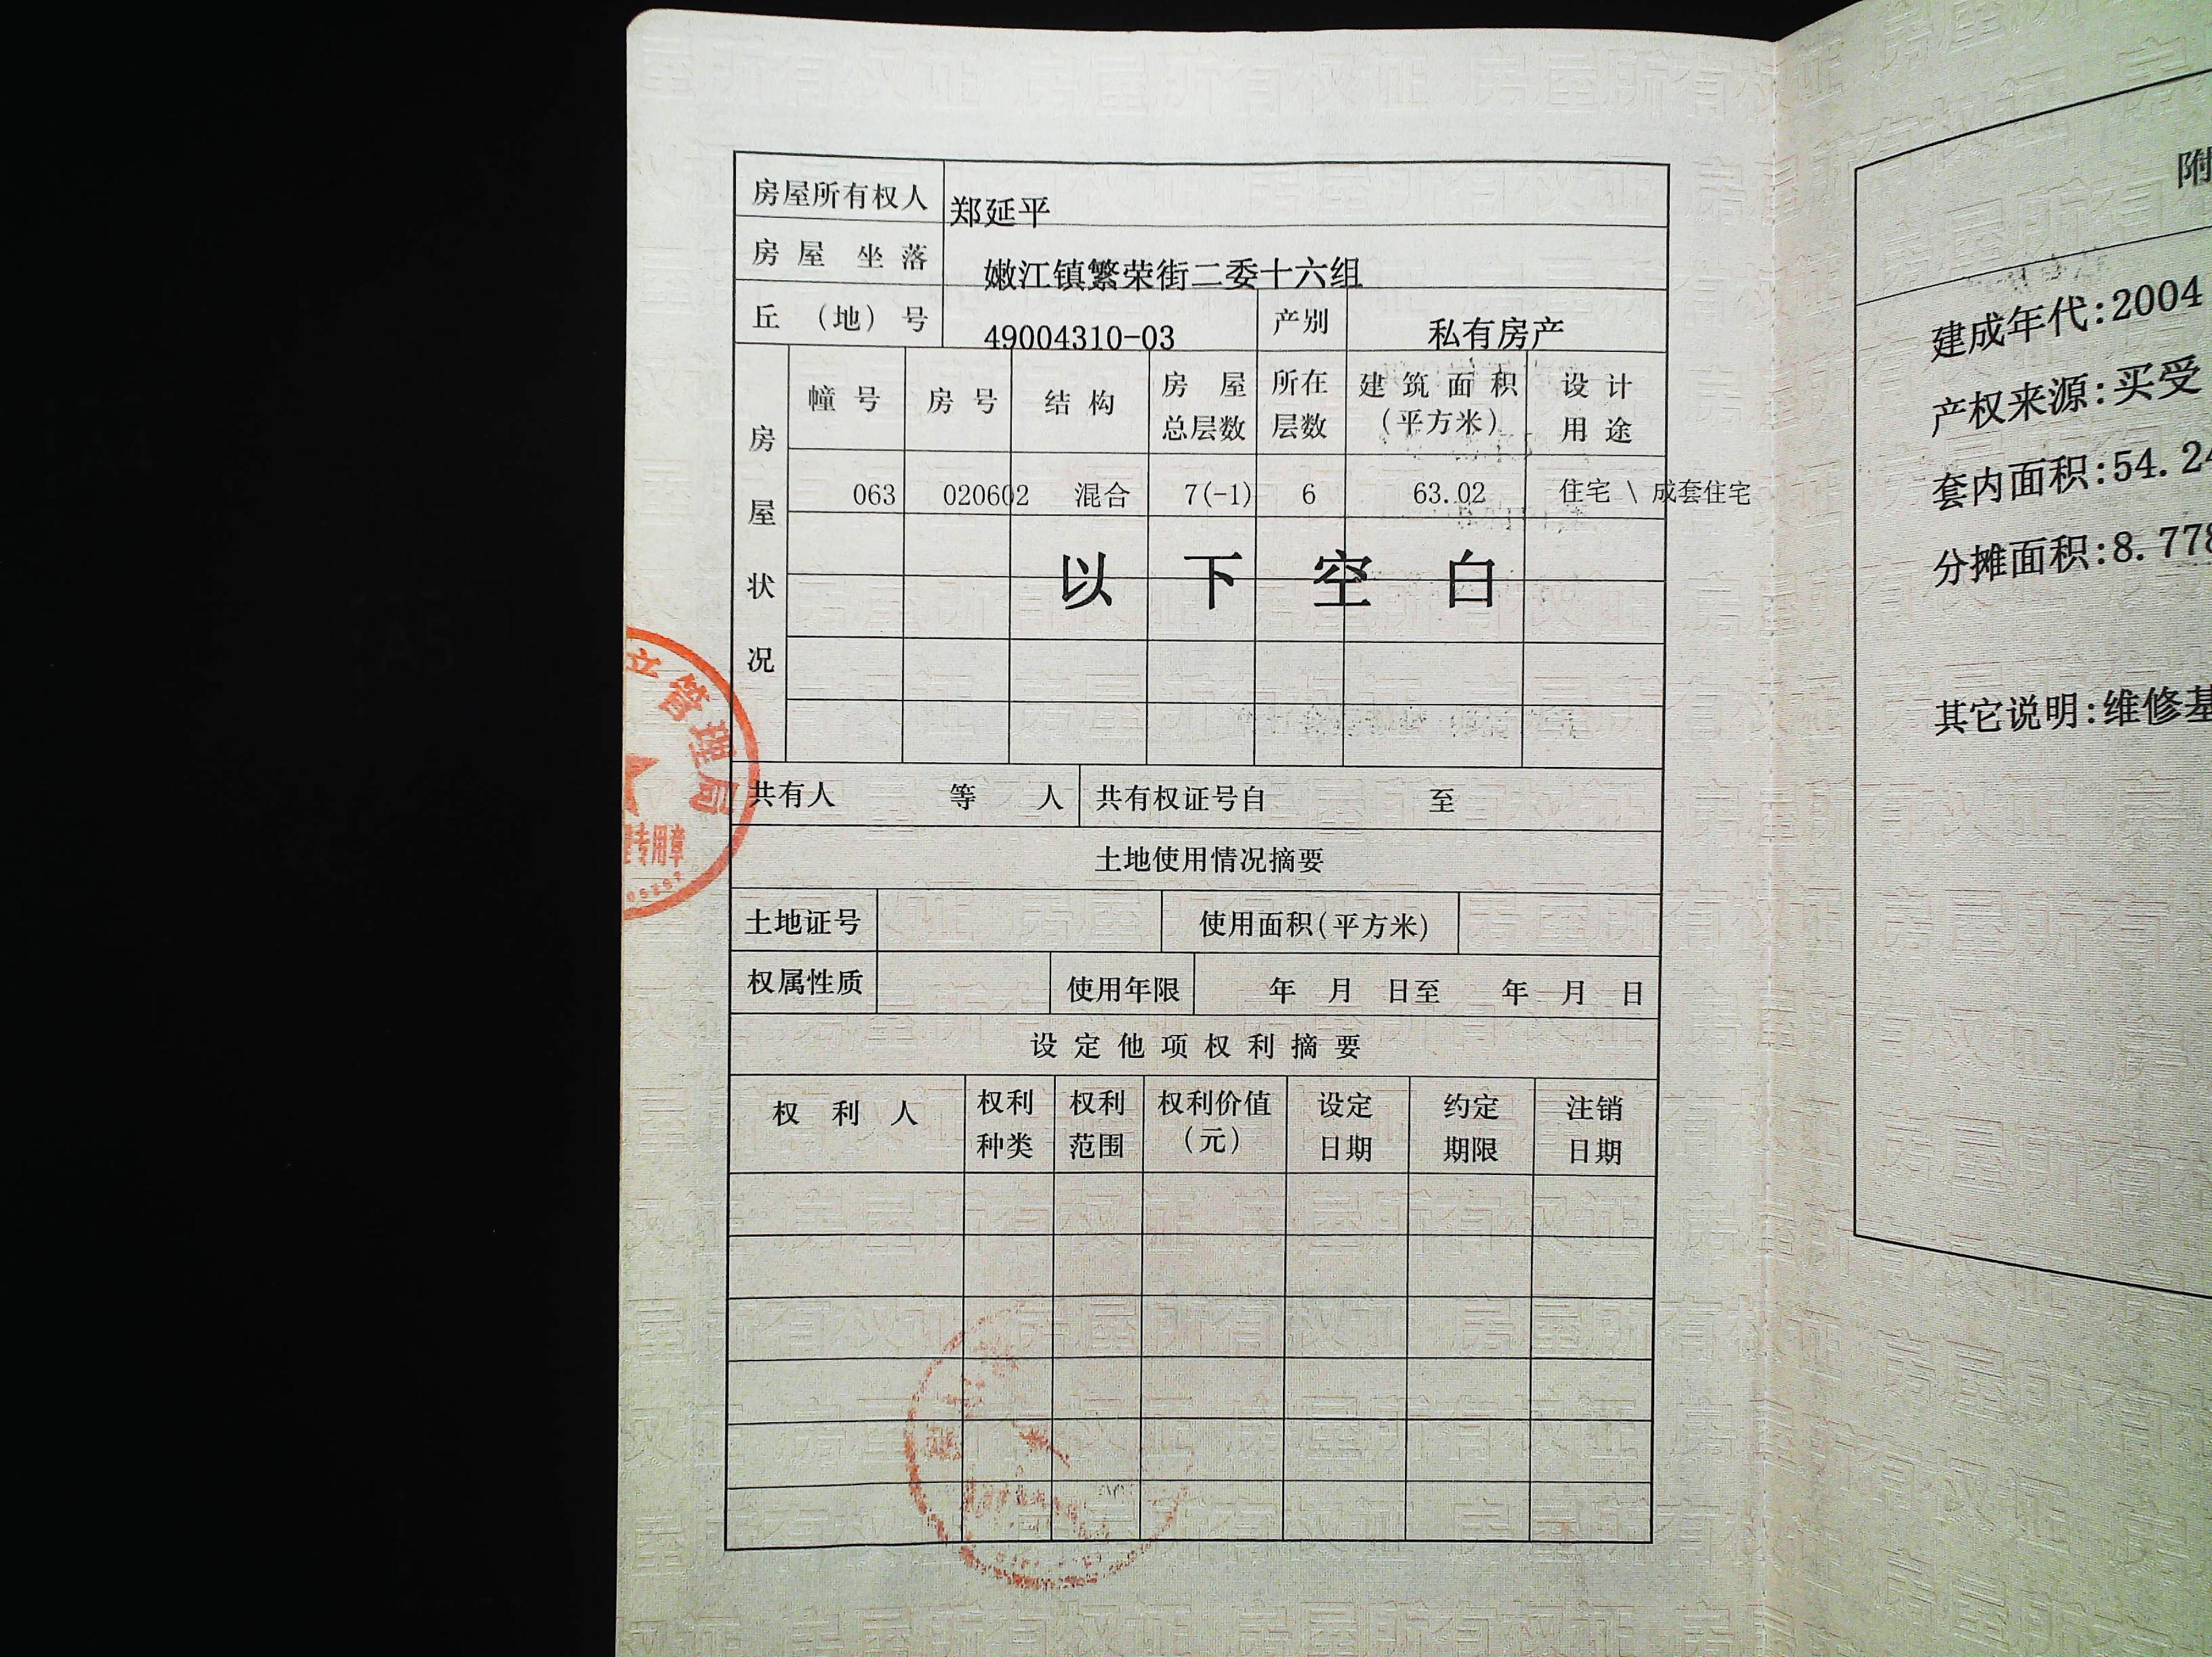 房屋所有权人 郑延平
房屋坐落 嫩江镇繁荣街二委十六组
丘(地)号 49004310-03 产别 私有房产
房屋状况
幢号 房号 结构 房屋总层数 所在层数 建筑面积(平方米) 设计用途
063 020602 混合 7(-1) 6 63.02 住宅 \ 成套住宅
以下空白
共有人 等 人 共有权证号自 至
土地使用情况摘要
土地证号 使用面积(平方米)
权属性质 使用年限 年 月 日至 年 月 日
设定他项权利摘要
权利人 权利种类 权利范围 权利价值(元) 设定日期 约定期限 注销日期
管理局
专用章
附
建成年代:2004
产权来源:买受
套内面积:54.24
分摊面积:8.778
其它说明:维修基